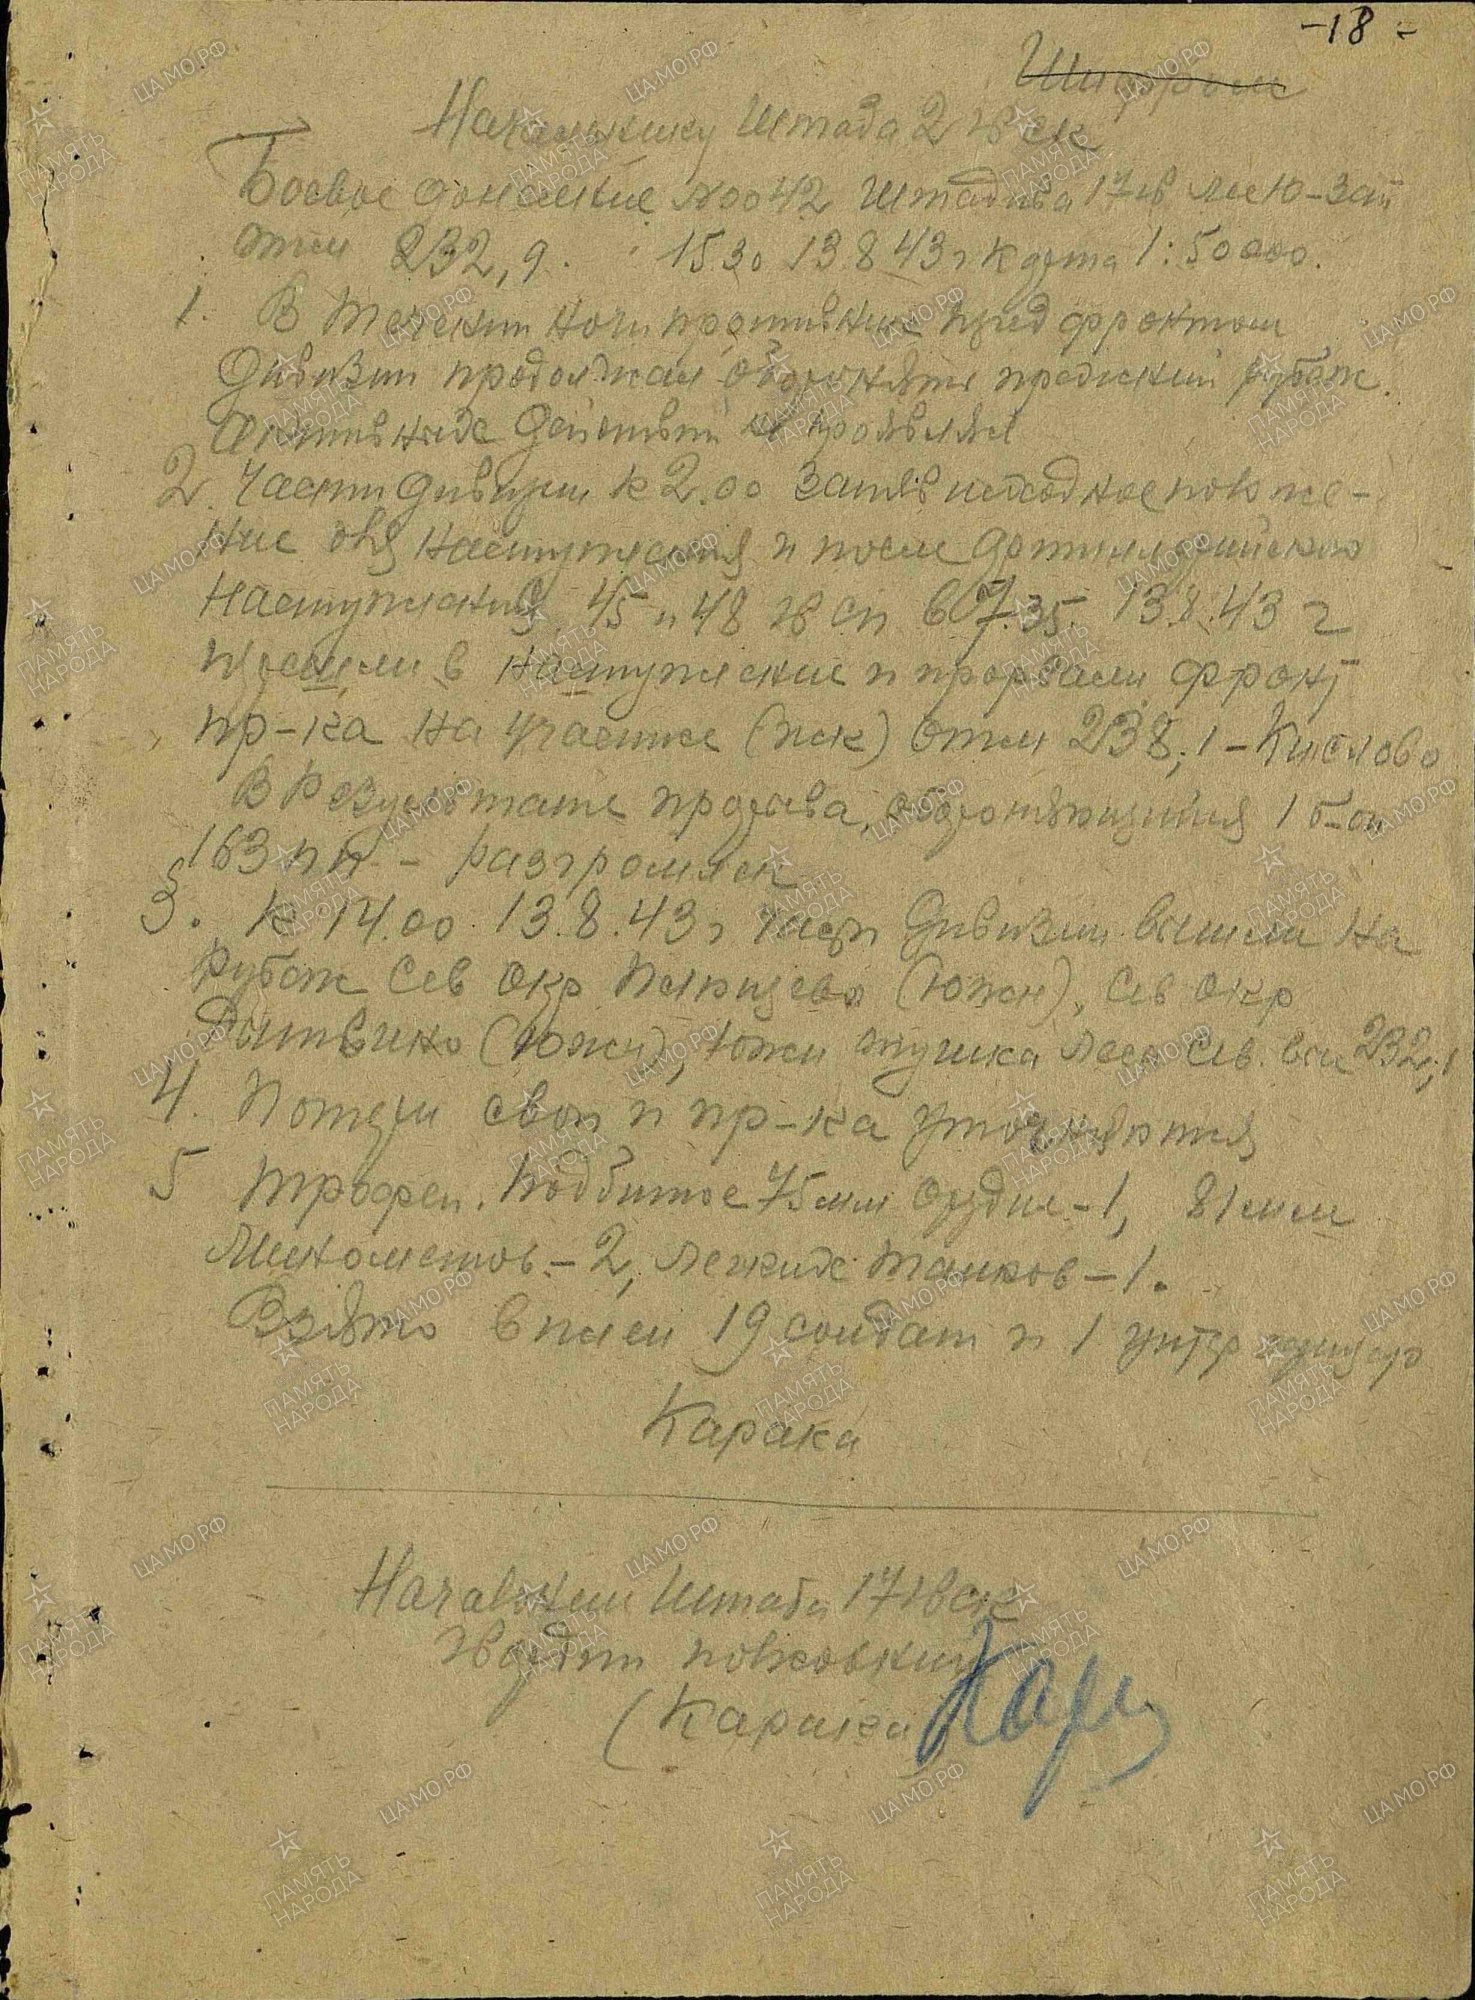 -18-
Шифром
Начальнику Штаба 2 гв ск
Боевое донесение №0042 Штадива 17 гв лес ю-зап
отм 232,9. 1530 13 8 43 г карта 1:50000.
1. В течении ночи противник перед фронтом
Дивизии продолжал оборонять прежний рубеж.
Активных действий не проявлял
2. Части дивизии к 2.00 заняв исходное положе-
ние для наступления и после артиллерийского
наступления 45 и 48 гв сп в 07.35. 13.8.43 г
перешли в наступление и прорвали фронт
пр-ка на участке (иск) отм 238,1 - Кислово
В результате прорыва, обороняющийся 1 б-он
163 пп - разгромлен
3. К 14.00. 13.8.43 г части дивизии вышли на
рубеж Сев окр (южн), Сев окр
(южн), южн опушка леса Сев. выс 232,1
4. Потери свои и пр-ка уточняются
5 Трофеи. Подбитое 75 мм орудие-1, 81 мм
Минометов-2, легких танков-1.
Взято в плен 19 солдат и 1 унтер офицер
Карака
Начальник Штаба 17 гвск
гвардии полковник
(Карака